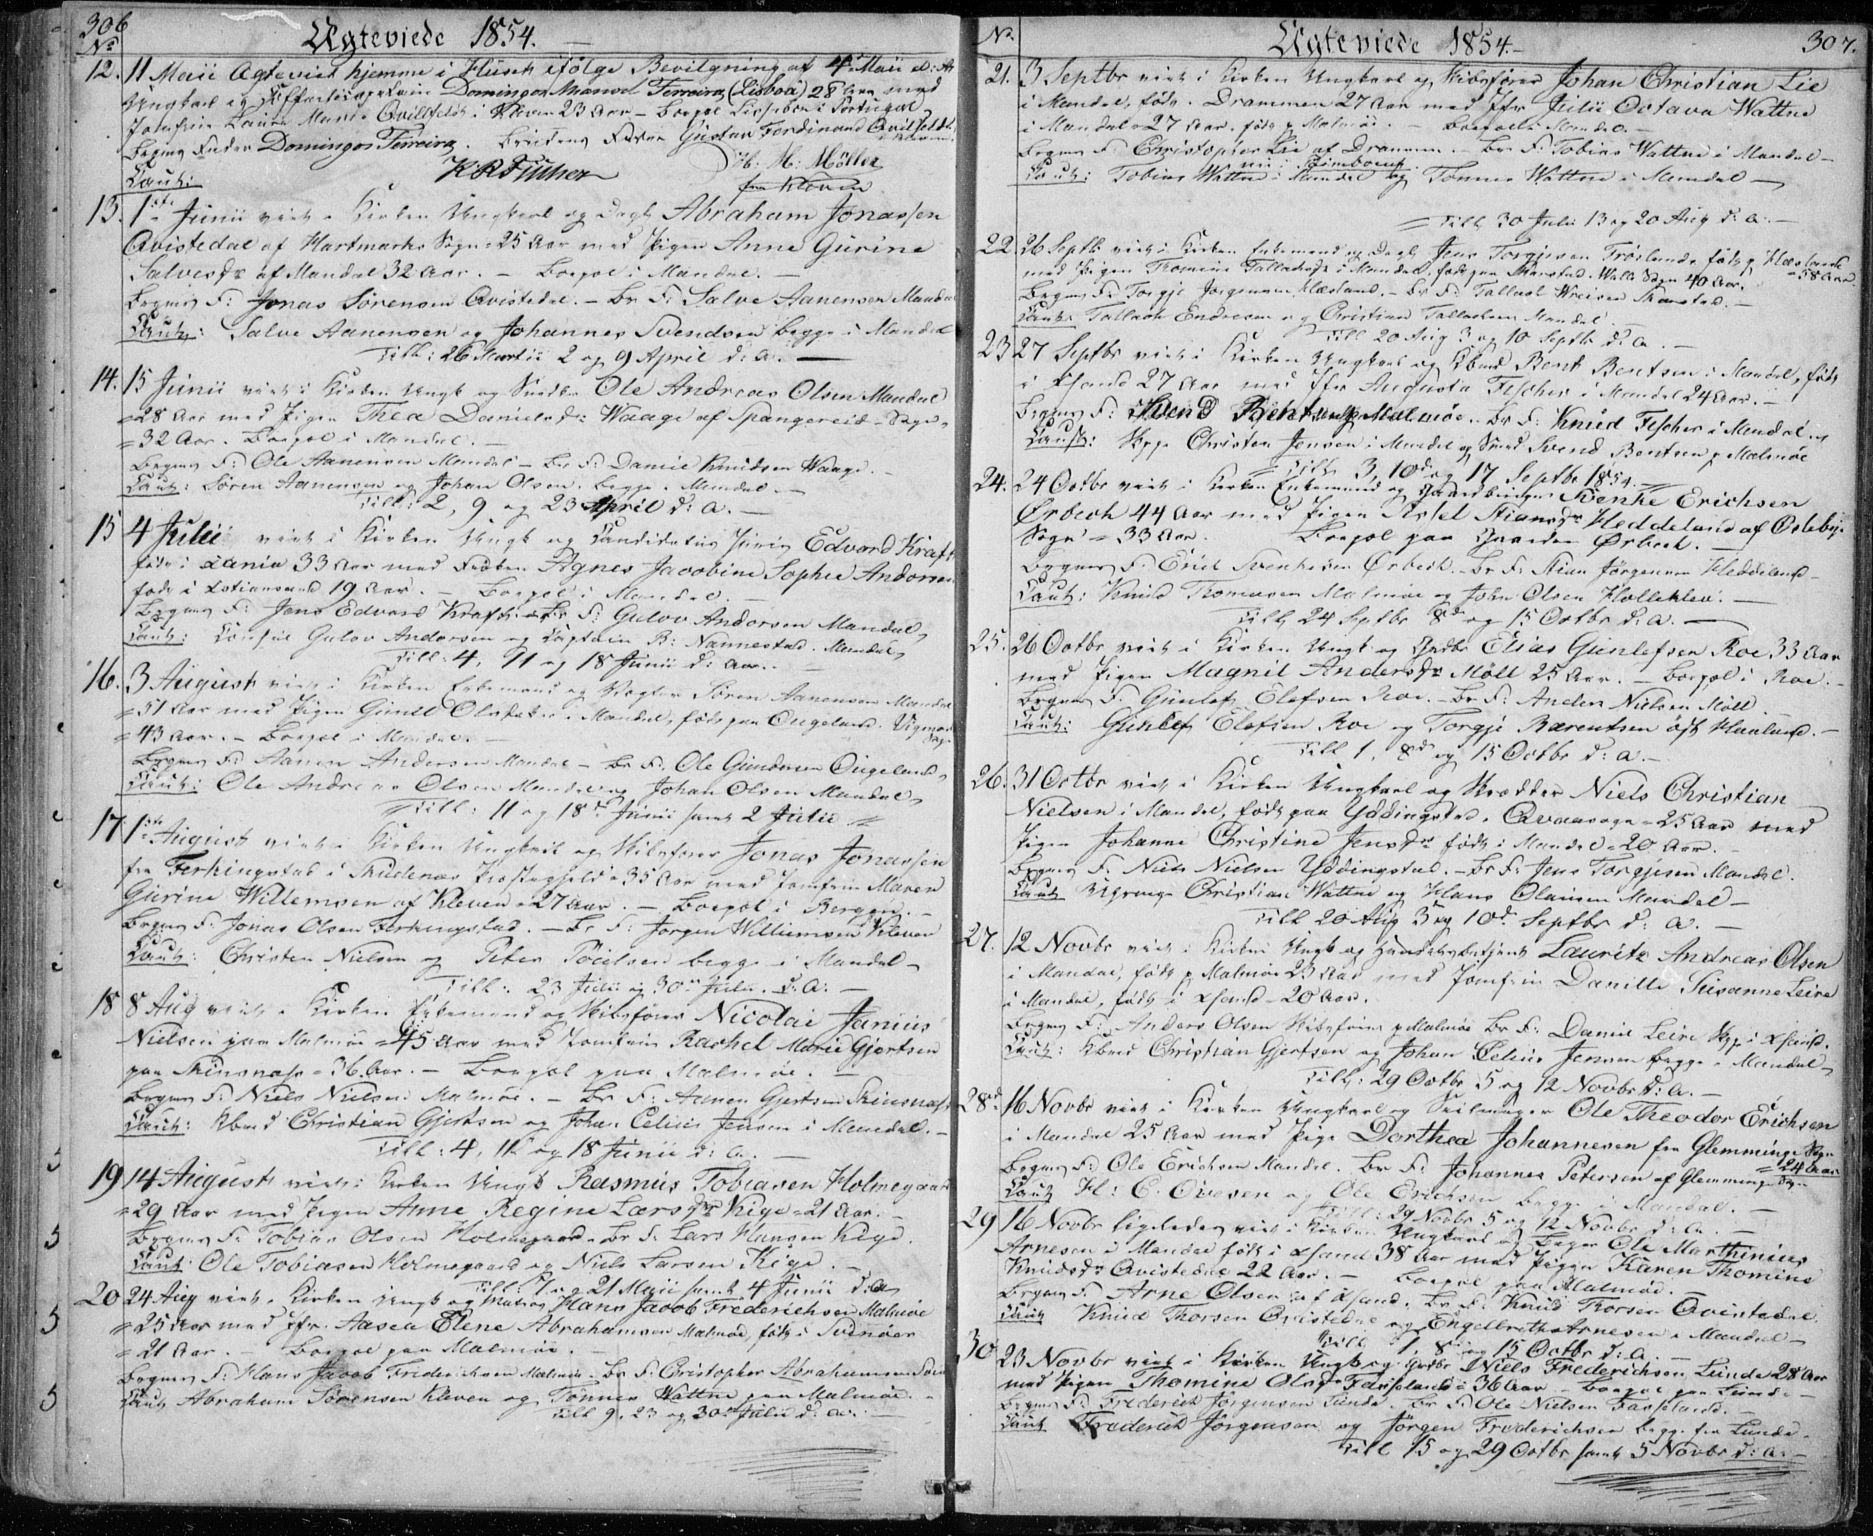 306
No
Ægteviede 1854.
12. 11 Maii Ægteviet hjemme i Huset ifølge Bevilgning af 4 Maii d: A:
Ungkarl og Domingos Manoel Ferreira (Lisboa) 28 Aar med
Jomfrue Laura Marie Qvilfeldt i Kleven 23 Aar – Bopæl Lissabon i Portugal
Brgms Fader Domingos Ferreira. Brudens Fader Gustav Ferdinand Qvilfeldt
Caut: H. M. Möller
fra Kleven
13. 1ste Junii viet i Kirken Ungkarl og Abraham Jonassen
Qvistedal af Hartmarks Sogn = 25 Aar med Pigen Anne Gurine
Salvesdr af Mandal 32 Aar. – Bopæl i Mandal. –
Brgms F: Jonas Sörensen Qvistedal. – Br F: Salve Aanensen Mandal
Caut: Salve Aanensen og Johannes Svendsen begge i Mandal
Till: 26 Martii 2 og 9 April d: A: –
14. 15 Junii viet i Kirken Ungk og Snedker Ole Andreas Olsen Mandal
= 28 Aar med Pigen Thea Danielsdr Waage af Spangereid – Sogn
= 32 Aar. Bopæl i Mandal. –
Brgms F: Ole Aanensen Mandal – Br F: Daniel Knudsen Waage. –
Caut: Sören Aanensen og Johan Olsen, begge i Mandal. –
Till: 2, 9 og 23 April d: A. –
15 4 Julii viet i Kirken Ungk og Candidatus juris Edvard Kraft
født i Xania 33 Aar med Frøken Agnes Jacobine Sophie Andorsen
født i Xstiansand 19 Aar. – Bopæl i Mandal. –
Brgms F: Jens Edvard Kraft – Br F: Gulov Andorsen Mandal
Caut: Consul Gulov Andorsen og Captain B: Nannestad. Mandal
Till: 4, 11 og 18 Junii d: Aar. –
16. 3 August viet i Kirken Enkemand og Sören Aanensen Mandal
= 51 Aar med Pigen Gunild Olsdatter i Mandal, født paa Öugeland. Vigmostad
= 43 Aar. – Bopæl i Mandal. – Sogn
Brgms F: Aanen Andersen Mandal – Br F: Ole Gundersen Öugeland
Caut: Ole Andreas Olsen Mandal og Johan Olsen Mandal
Till: 11 og 18de Junii samt 2 Julii
17 1ste August viet i Kirken Ungkarl og Skibsfører Jonas Jonassen
fra Ferkingstad i Skudenæs Præstegjeld = 35 Aar med Jomfrue Maren
Gurine Willemsen af Kleven = 27 Aar. – Bopæl i Bergen. –
Brgms F: Jonas Olsen Ferkingstad. – Br F: Jörgen Willumsen Kleven
Caut: Christen Nielsen og Peter Poulsen begge i Mandal
Till: 23 Julii og 30 Julii. d: A: –
18 8 Aug viet i Kirken Enkemand og Skibsfører Nicolai Junius
Nielsen paa Malmöe = 45 Aar med Jomfrue Rachel Marie Gjertsen
paa Skinsnæs = 36 Aar. – Bopæl paa Malmöe. –
Brgms F: Niels Nielsen Malmöe. – Br F: Aanen Gjertsen Skinsnæs
Caut: Kbmd Christian Gjertsen og Johan Celius Jensen i Mandal. –
Till: 4, 11 og 18 Junii d: a. –
19 14 August viet i Kirken Ungk Rasmus Tobiasen Holmegaard
= 29 Aar med Pigen Anne Regine Larsdr Kige = 21 Aar. –
Brgms F: Tobias Olsen Holmegaard – Br F: Lars Hansen Kige.
Caut: Ole Tobiasen Holmegaard og Niels Larsen Kige. –
Till: 7 og 21 Maii samt 4 Junii d: A
20 24 Aug viet i Kirken Ungk og Matros Hans Jacob Frederichsen Malmöe
= 25 Aar med Jfr. Aasea Elene Abrahamsen Malmöe, født i
= 21 Aar. – Bopæl paa Malmöe. –
Brgms F: Hans Jacob Frederichsen Malmöe. Br F: Cristopher Abrahamsen
Caut Abraham Sörensen Kleven og Tönnes Wattne paa Malmöe. –
Till 9, 23 og 30 Julii d: a: –
No
Ægteviede 1854. –
307.
21. 3 Septbr viet i Kirken Ungkarl og Skibsfører Johan Christian Lie
i Mandal, født i Drammen 27 Aar med Jfr Julie Octava Wattne
i Mandal = 27 Aar. født p Malmöe. – Bopæl i Mandal. –
Brgms F: Christopher Lie af Drammen. – Br F: Tobias Wattne i Mandal –
Caut: Tobias Wattne i Mandal og Tönnes Wattne i Mandal –
Till 30 Julii 13 og 20 Aug d: a: –
22. 26 Septb viet i Kirken Enkemand og Jens Torgjesen Fröslands født p Klæsland
= 58 Aar
med Pigen Thomine Tallaksdr i Mandal, født paa Sogn 40 Aar.
Brgms F: Torgje Jörgensen Klæsland. – Br F: Tallak
Caut: Tallak Endresen og Christian Tallaksen Mandal.
Till 20 Aug 3 og 10 Septb d: a. –
23 27 Septbr viet i Kirken Ungkarl og Kbmd Bent Bentsen i Mandal, født
i Xsand 27 Aar med Jfr Augusta Fischer i Mandal 24 Aar. –
Brgms F: Svend Bentsen p Malmöe. Br F: Knud Fischer i Mandal
Caut: Christen Jensen i Mandal og Svend Bentsen p Malmöe
Till 3, 10de og 17 Septbr 1854. –
24. 24 Octbr viet i Kirken Enkemand og Gaardbruger Svenke Erichsen
Örbech 44 Aar med Pigen Assel Stiansdr Heddeland af Öslebye
Sogn = 33 Aar. Bopæl paa Gaarden Örbech. –
Brgms F: Erich Svenkesen Örbech. – Br F: Stian Jörgensen Heddeland –
Caut: Knud Thomesen Malmöe og John Olsen Holleklev. –
Till 24 Septbr 8de og 15 Octbr d: a. –
25. 26 Octbr viet i Kirken Ungk og Elias Gunlefsen Roe 33 Aar
med Pigen Magnil Andersdr Möll 25 Aar. – Bopæl i Roe. –
Brgms F: Gunlef Elefsen Roe. – Br F: Anders Nielsen Möll
Caut: Gunlef Elefsen Roe og Torgje Barentsen öst Haaland. –
Till 1, 8de og 15 Octbr d: a. –
26. 31 Octbr viet i Kirken Ungkarl og Skrædder Niels Christian
Nielsen i Mandal, født paa Uddingstad. Qvaassogn = 25 Aar med
Pigen Johanne Christine Jensdr født i Mandal = 20 Aar. –
Brgms F: Niels Nielsen Uddingstad. – Br F: Jens Torgjesen Mandal.
Caut: Christian Wattne og Hans Olausen Mandal –
Till 20 Aug 3 og 10de Septbr d: A. –
27. 12 Novbr viet i Kirken Ungk og Handelsbetjent Lauritz Andreas Olsen
i Mandal, født p Malmöe 23 Aar med Jomfrue Danille Susanne Leire
i Mandal, født i Xsand = 20 Aar.
Brgms F: Anders Olsen Skibsfører p Malmöe Br F: Daniel Leire i Xsand.
Caut: Kbmd Christian Gjertsen og Johan Celius Jensen begge i Mandal
Till: 29 Octbr 5 og 12 Novbr d: a. –
28de 16 Novbr viet i Kirken Ungkarl og Seilmager Ole Theodor Erichsen
i Mandal 25 Aar med Pige Dorthea Johannesen fra Glemminge Sogn
= 24 Aar
Brgms F: Ole Erichsen Mandal. Br F: Johannes Petersen af Glemminge Sogn
Caut H: C. Ovesen og Ole Erichsen begge i Mandal. –
Till: 29 Novbr 5 og 12 Novbr d: a. –
29 16 Novbr ligeledes viet i Kirken Ungkarl og Bager Ole Marthinius
Arnesen i Mandal født i Xsand 38 Aar med Pigen Karen Thomine
Knudsdr Qvistedal 22 Aar. – Bopæl paa Malmöe.
Brgms F: Arne Olsen af Xsand. Br F: Knud Thorsen Qvistedal
Caut Knud Thorsen Qvistedal og Engelbreth Arnesen i Mandal –
Till 1, 8 og 15 Octbr d: a. –
30 23 Novbr viet i Kirken Ungk og Niels Frederichsen Lunde 28 Aar
med Pigen Thomine Olsdr Fasseland = 36 Aar. – Bopæl paa Lunde –
Brgms F: Frederich Jörgensen Lunde. Br F: Ole Nielsen Fasseland. –
Caut Frederich Jörgensen og Jörgen Frederichsen begge fra Lunde. –
Till 15 og 29 Octbr samt 5 Novbr d: a: –